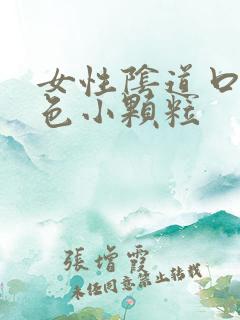 女性陰道口
色小顆粒
張增霞
未經同意禁止轉載